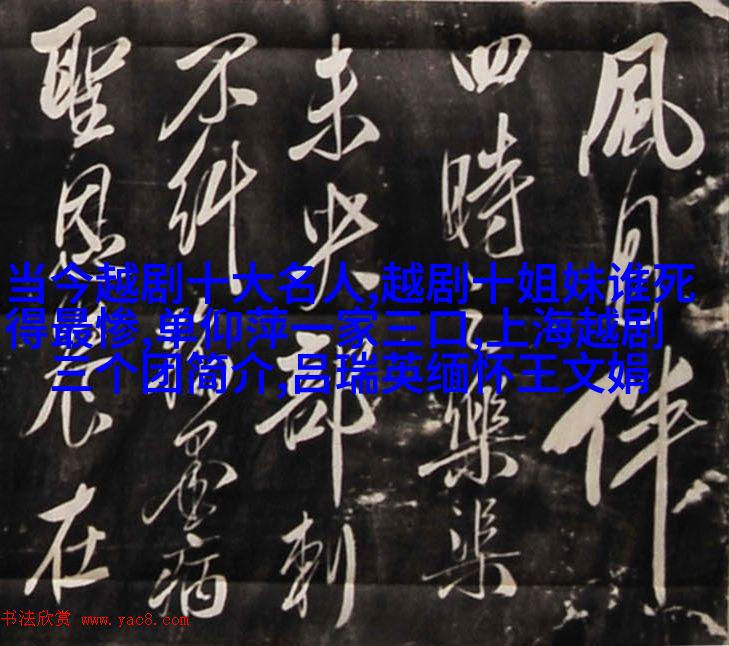 風月伴
四時樂渠
未央部刺
不糾墨病
聖恩在
当今越剧十大名人,越剧十姐妹谁死
得最惨,单仰萍一家三口,上海越剧
三个团简介,吕瑞英缅怀王文娟
书法欣赏 www.yac8.com